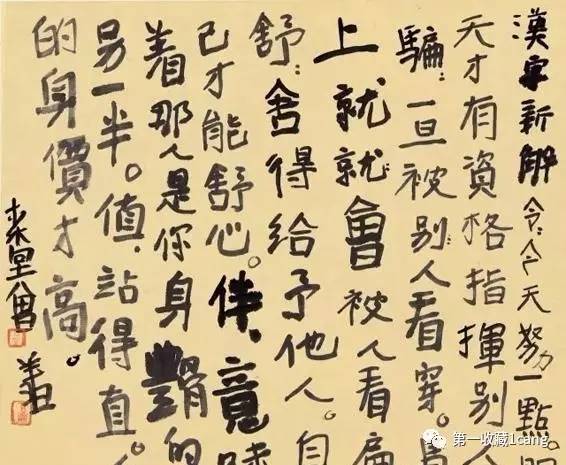 漢字新解 令:今天努一點。明
天才有資格指揮別人
騙:一旦被別人看穿。馬
上就就會被人看扁
舒:舍得給予他人。自
己才能舒心。伴、意味
着那人是你身體的
另一半。值、站得直。人
的身價才高。
第一收藏1cang